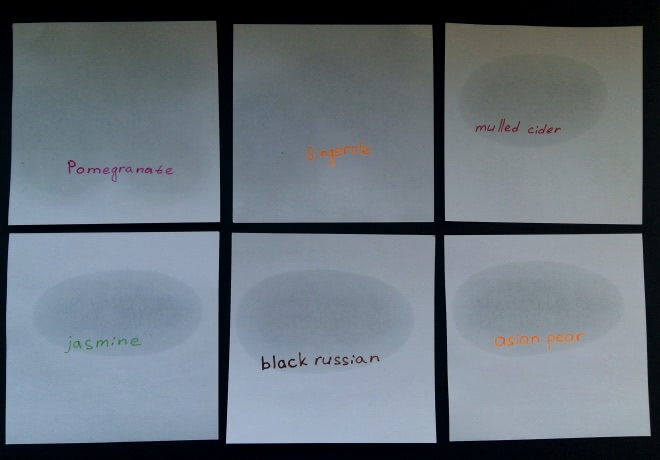 Pomegranate
mulled cider
jasmine
black russian
asian pear